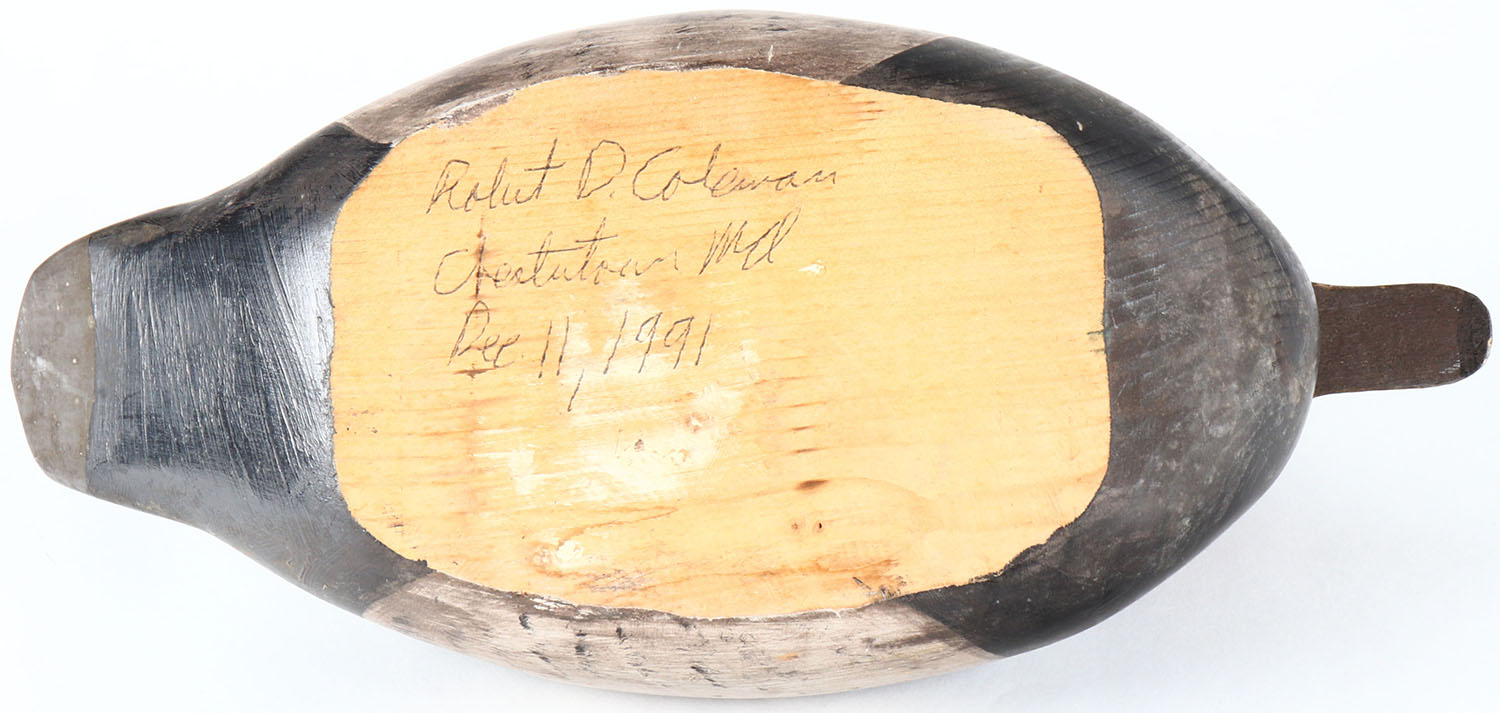 Robert D. Coleman
Chestertown Md
Dec 11, 1991